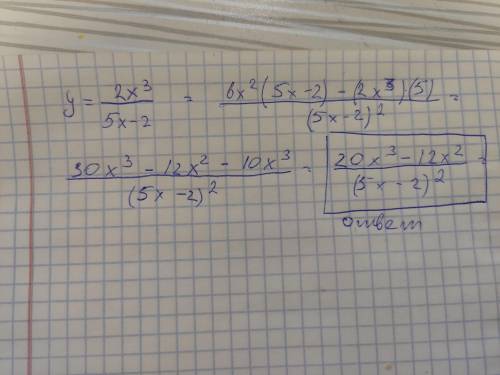 y = 2x³/(5x-2) = (6x²(5x-2) - (2x³)(5))/(5x-2)² =
(30x³ - 12x² - 10x³)/(5x-2)² = (20x³ - 12x²)/(5x-2)² =
ответ